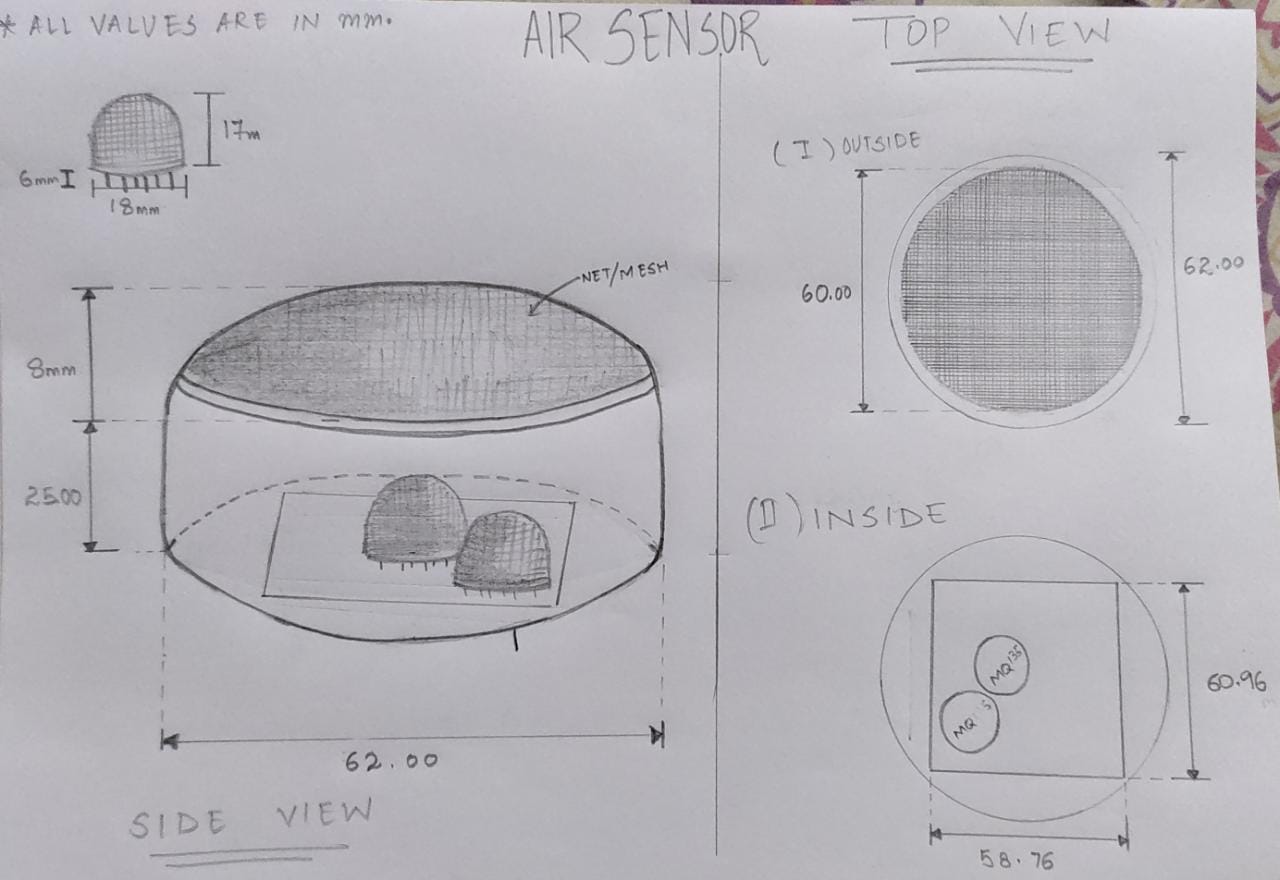 * ALL VALUES ARE IN mm.
AIR SENSOR
TOP VIEW
17m
6mm
18mm
NET/MESH
8mm
25.00
62.00
SIDE VIEW
(I) OUTSIDE
60.00
62.00
(II) INSIDE
MQ135
MQ
60.96
58.76